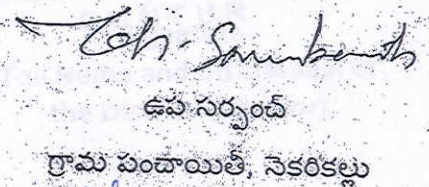 ఉప సర్పంచ్
గ్రామ పంచాయితీ, నెకరికల్లు